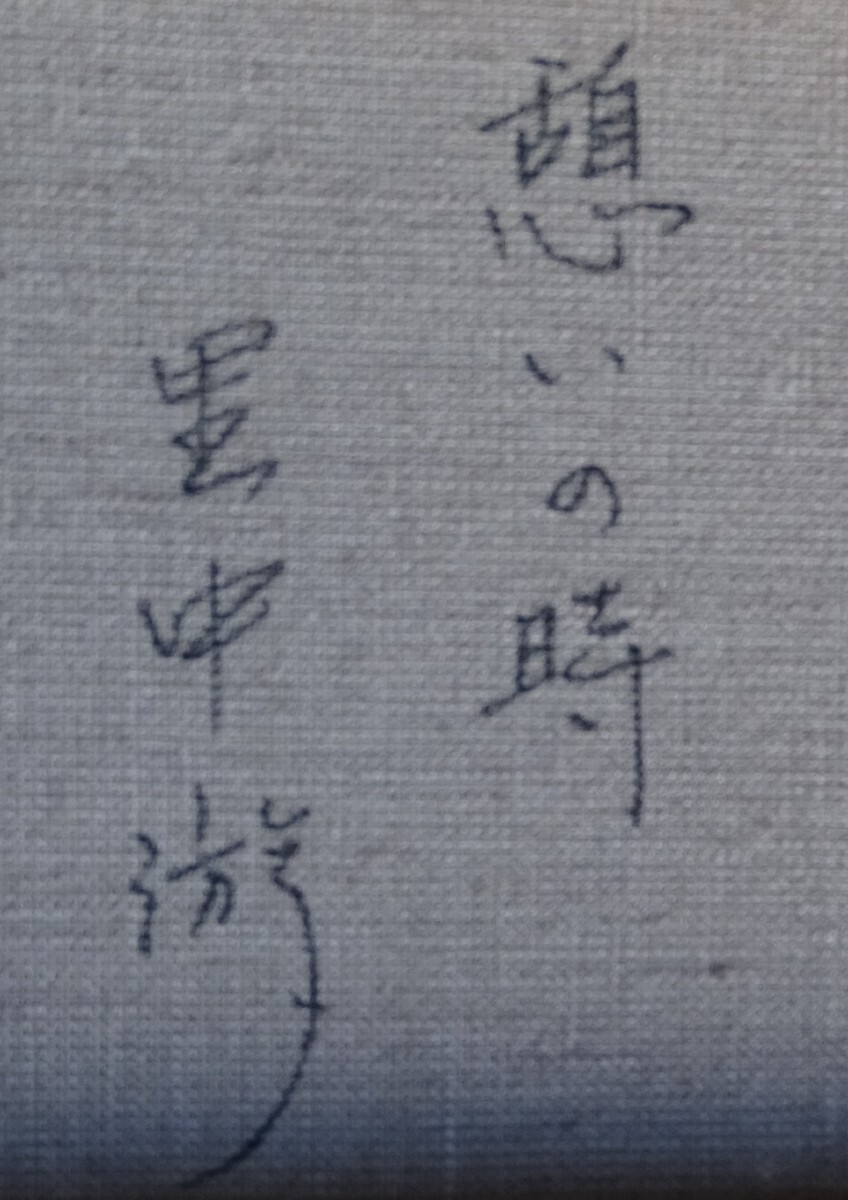 憩いの時
里中游